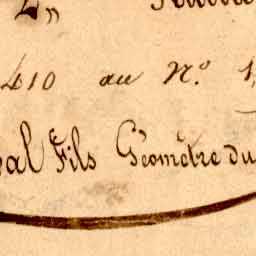 410 au N.º 1
al Fils Géomètre du